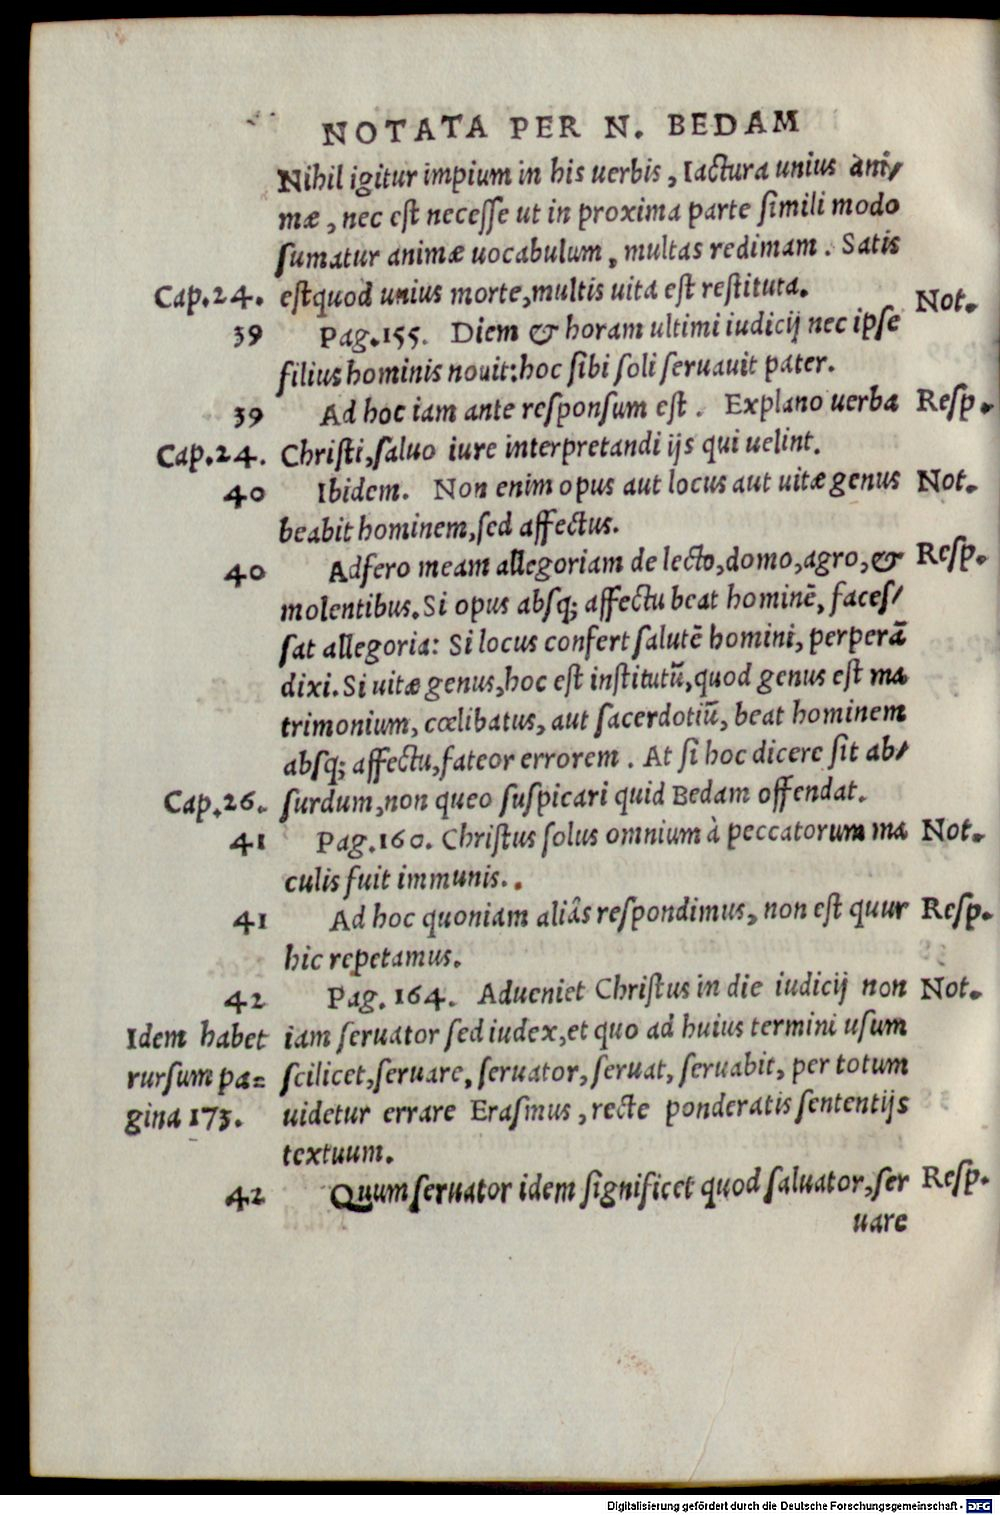 NOTATA PER N. BEDAM
Nihil igitur impium in his uerbis, Iactura unius ani/
mæ, nec est necesse ut in proxima parte simili modo
sumatur animæ uocabulum, multas redimam. Satis
Cap.24. estquod unius morte, multis uita est restituta.
39 Pag.155. Diem & horam ultimi iudicij nec ipse Not.
filius hominis nouit: hoc sibi soli seruauit pater.
39 Ad hoc iam ante responsum est. Explano uerba Resp.
Cap.24. Christi, saluo iure interpretandi ijs qui uelint.
40 Ibidem. Non enim opus aut locus aut uitæ genus Not.
beabit hominem, sed affectus.
40 Adfero meam allegoriam de lecto, domo, agro, & Resp.
molentibus. Si opus absq; affectu beat hominē, faces/
sat allegoria: Si locus confert salutē homini, perperā
dixi. Si uitæ genus, hoc est institutū, quod genus est ma
trimonium, cœlibatus, aut sacerdotiū, beat hominem
absq; affectu, fateor errorem. At si hoc dicere sit ab/
Cap.26. surdum, non queo suspicari quid Bedam offendat.
41 Pag.160. Christus solus omnium à peccatorum ma Not.
culis fuit immunis.
41 Ad hoc quoniam aliâs respondimus, non est quur Resp.
hic repetamus.
42 Pag. 164. Adueniet Christus in die iudicij non Not.
Idem habet iam seruator sed iudex, et quo ad huius termini usum
rursum pa= scilicet, seruare, seruator, seruat, seruabit, per totum
gina 173. uidetur errare Erasmus, recte ponderatis sententijs
textuum.
42 Quum seruator idem significet quod saluator, ser Resp.
uare
Digitalisierung gefördert durch die Deutsche Forschungsgemeinschaft - DFG